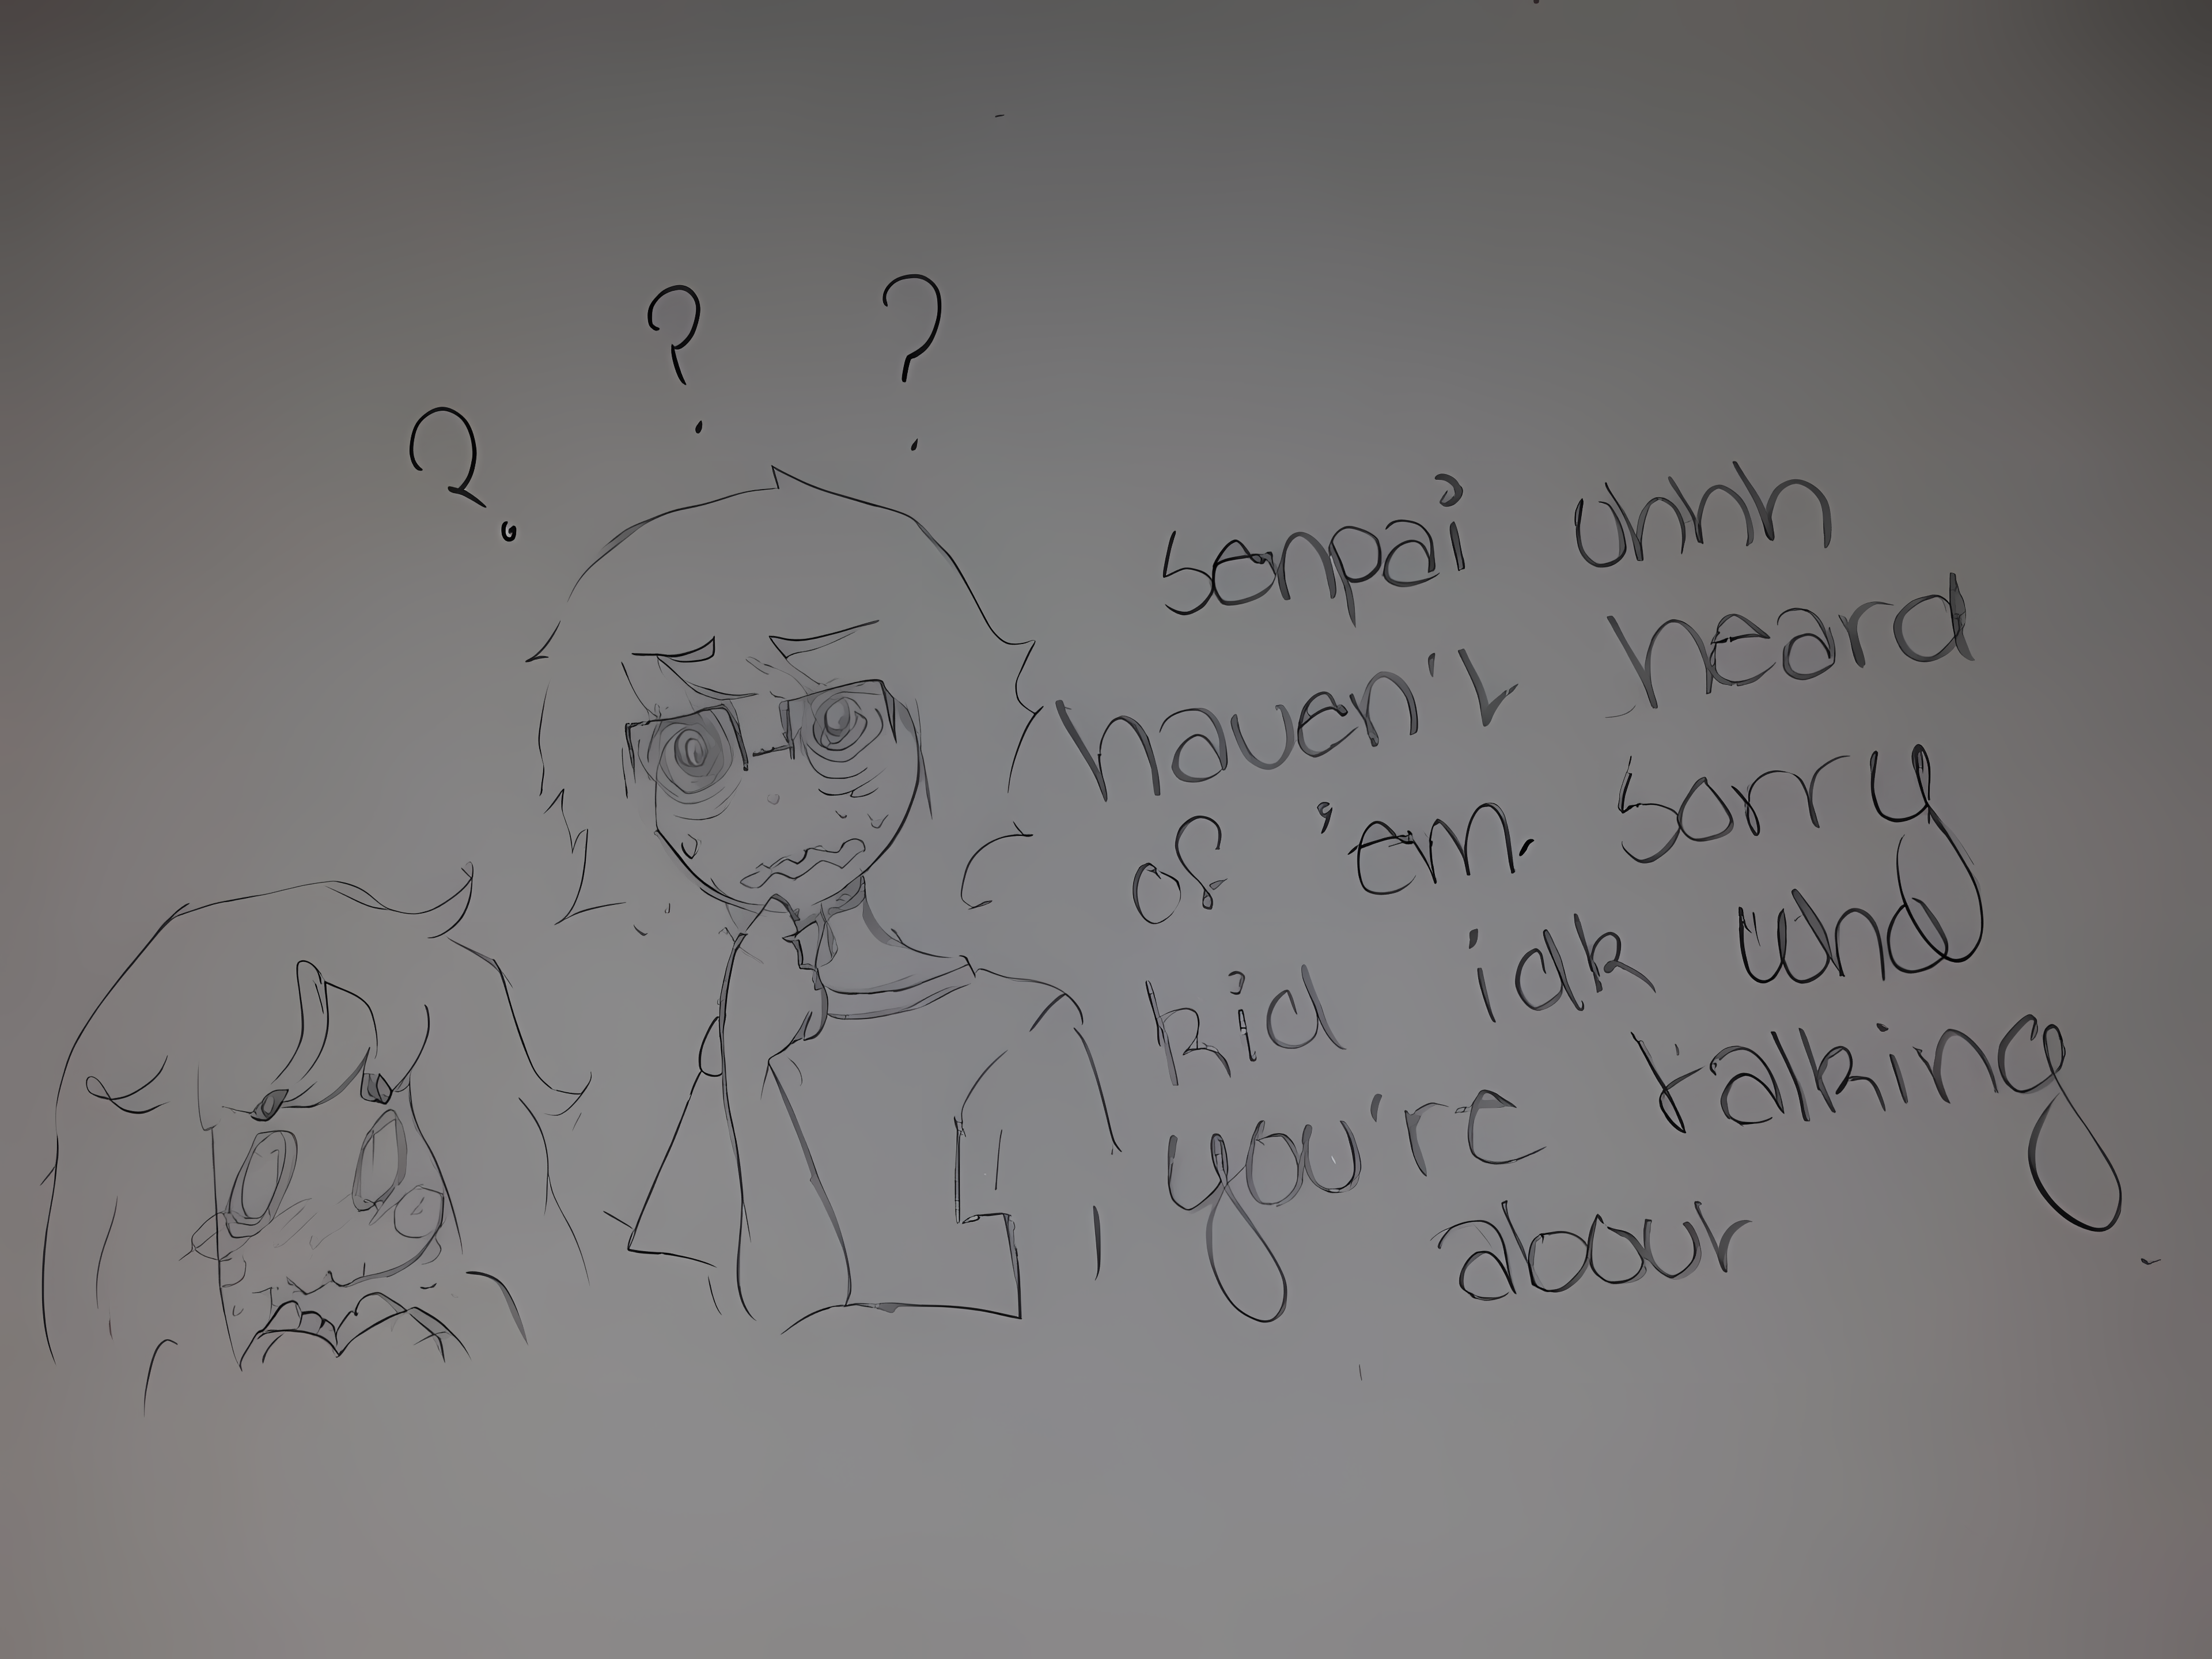 ? ? ?
senpai uhhh
haven't heard
of 'em. sorry
kid idk who
you're taking
about